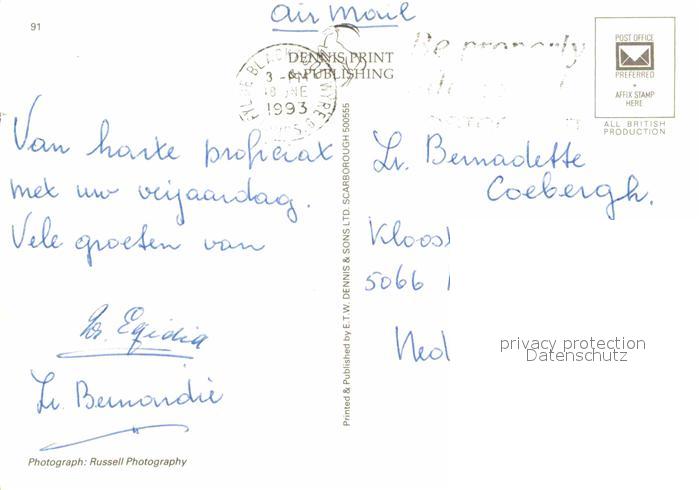 air mail
91
DENNIS PRINT
& PUBLISHING
3 - PM
1993
POST OFFICE
PREFERRED
AFFIX STAMP
HERE
ALL BRITISH
PRODUCTION
Be properly
Van harte proficiat
met uw verjaardag.
Vele groeten van
Zr. Egidia
Zr. Bernardie
Photograph: Russell Photography
Printed & Published by E.T.W. DENNIS & SONS LTD. SCARBOROUGH 500555
Zr. Bernadette
Coebergh.
Kloos
5066
Ned
privacy protection
Datenschutz